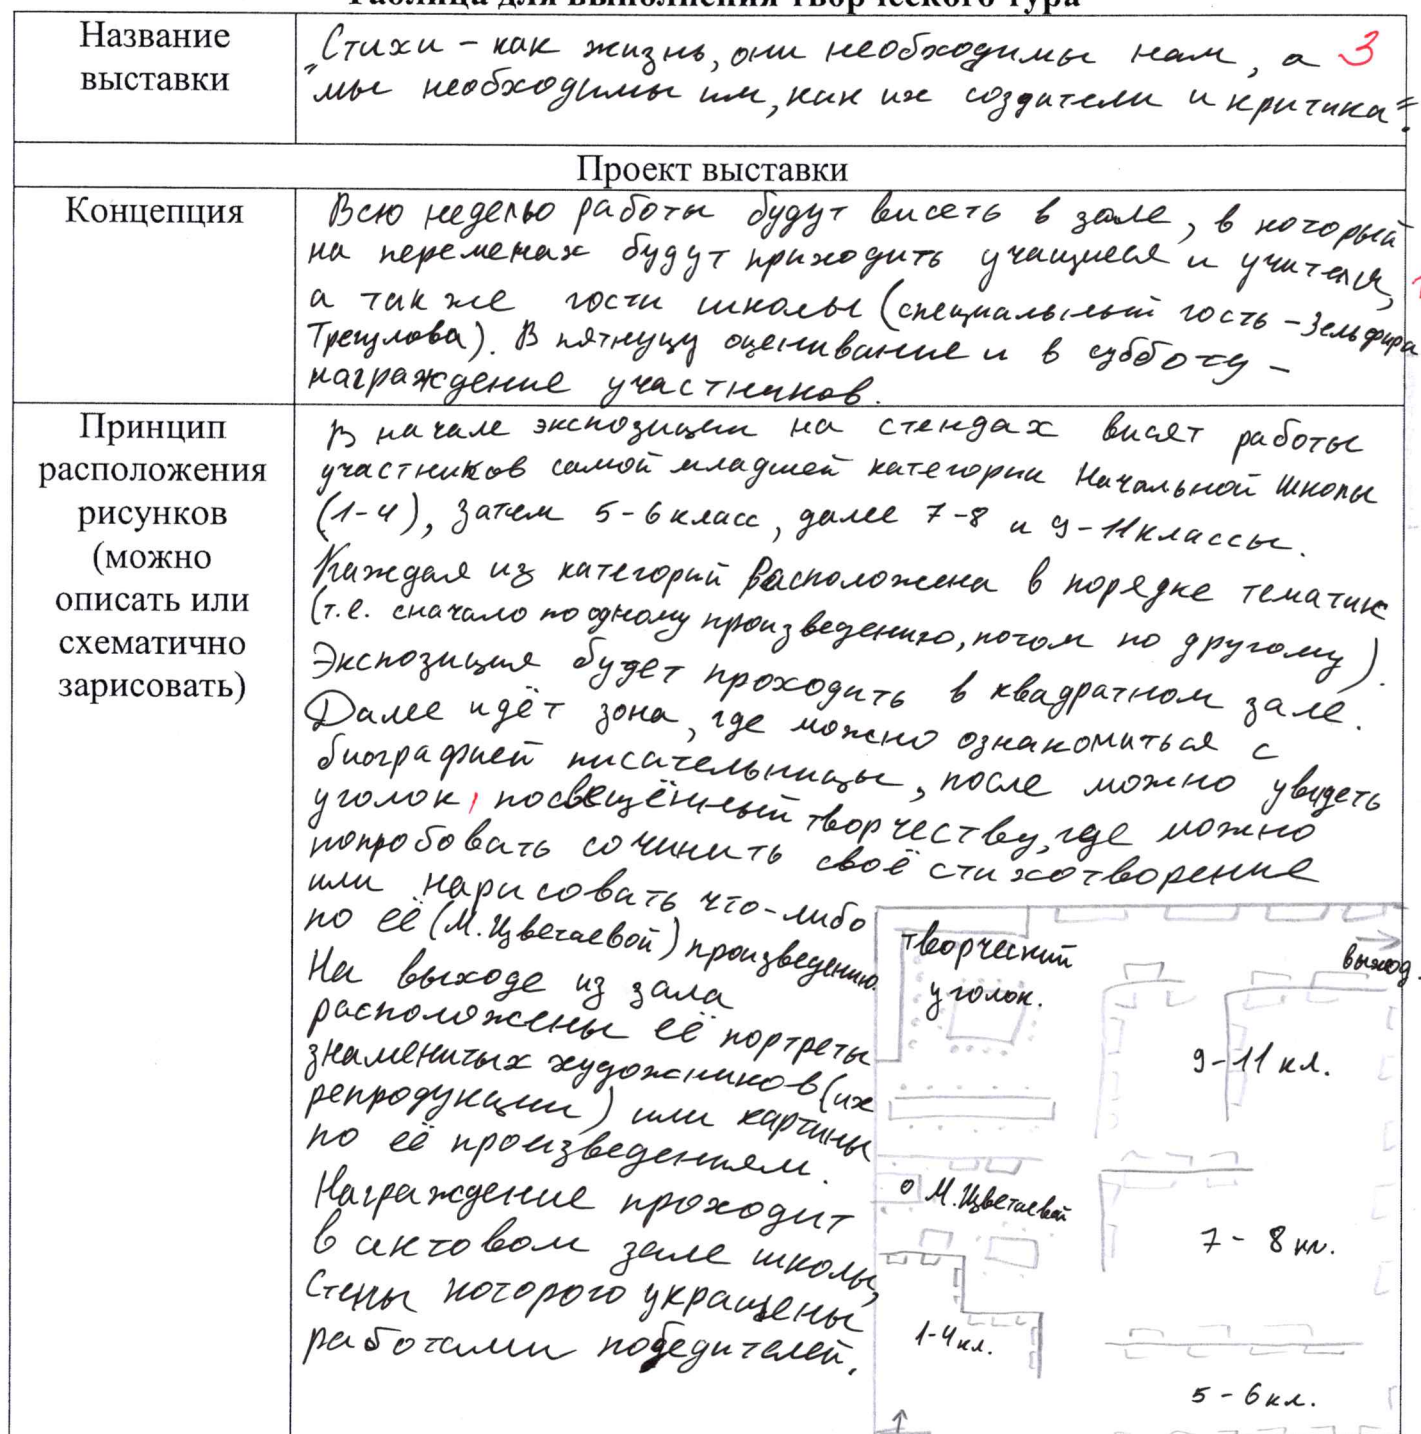 Таблица для выполнения творческого тура
Название
выставки
„Стихи – как жизнь, они необходимы нам, а 3
мы необходимы им, как их создатели и критика“.
Проект выставки
Концепция
Всю неделю работы будут висеть в зале, в который
на переменах будут приходить учащиеся и учителя,
а также гости школы (специальный гость – Зельфира
Трегулова). В пятницу оценивание и в субботу –
награждение участников.
Принцип
расположения
рисунков
(можно
описать или
схематично
зарисовать)
В начале экспозиции на стендах висят работы
участников самой младшей категории Начальной школы
(1-4), затем 5-6 класс, далее 7-8 и 9-11 классы.
Каждая из категорий расположена в порядке тематик
(т.е. сначало по одному произведению, потом по другому).
Экспозиция будет проходить в квадратном зале.
Далее идёт зона, где можно ознакомиться с
биографией писательницы, после можно увидеть
уголок, посвещённый творчеству, где можно
попробовать сочинить своё стихотворение
или нарисовать что-либо
по её (М. Цветаевой) произведению.
На выходе из зала
расположены её портреты
знаменитых художников (их
репродукции) или картины
по её произведениям.
Награждение проходит
в актовом зале школы,
Стены которого украшены
работами победителей.
творческий
уголок.
выход.
9-11 кл.
о М. Цветаевой
7 - 8 кл.
1-4 кл.
5 - 6 кл.